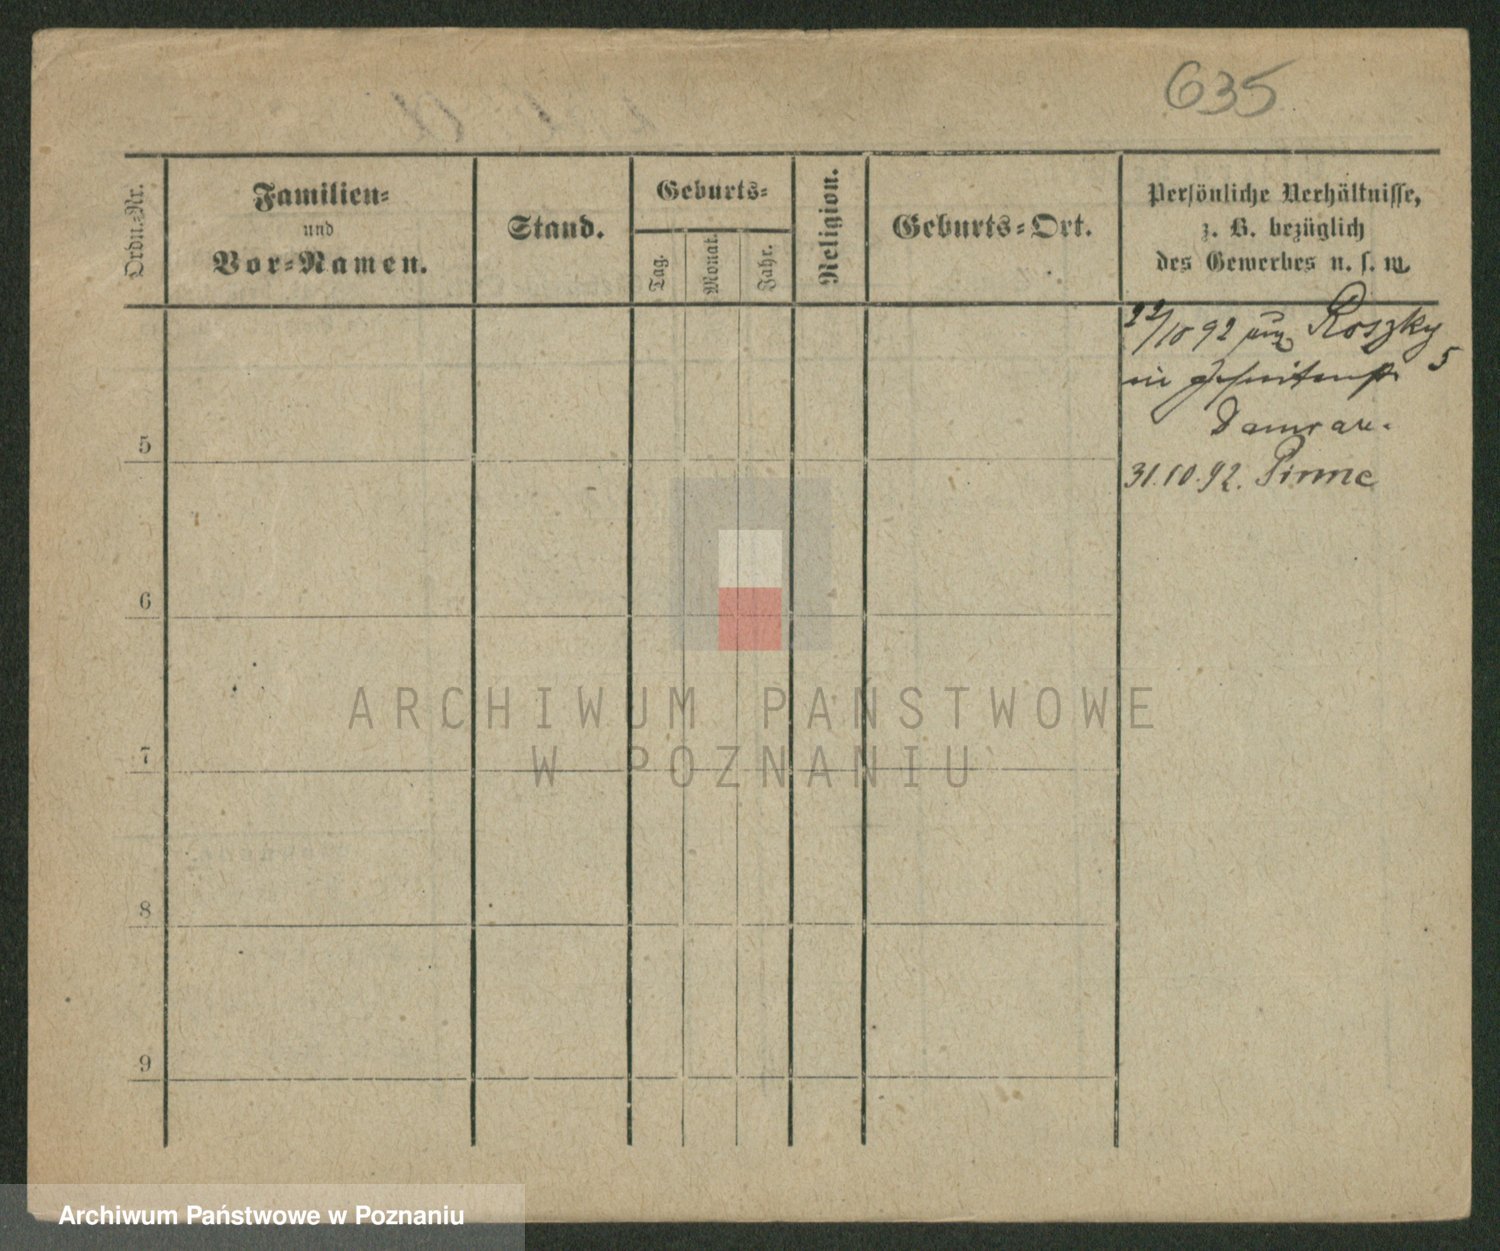 635
Ordn.-Nr.
Familien-
und
Vor-Namen.
Stand.
Geburts-
Tag.
Monat.
Jahr.
Religion.
Geburts-Ort.
Persönliche Verhältnisse,
z. B. bezüglich
des Gewerbes u. s. w.
22/10 92 Roszky
5
in
5
31.10.92. Pinne
6
7
8
9
ARCHIWUM PAŃSTWOWE
W POZNANIU
Archiwum Państwowe w Poznaniu